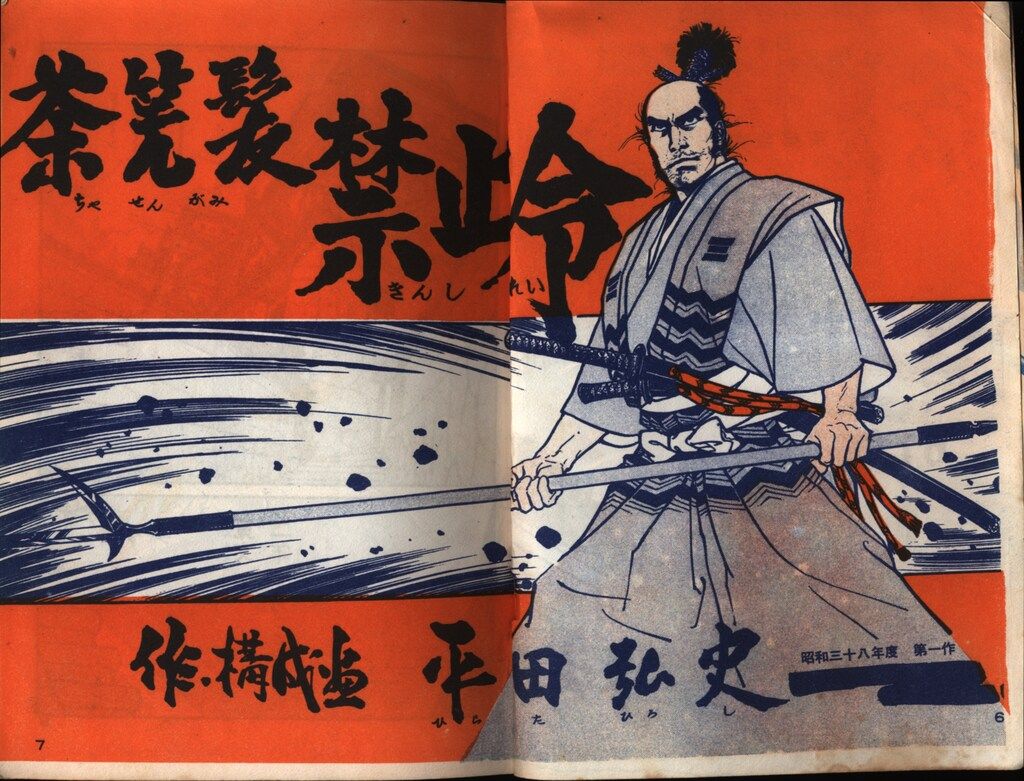 茶筅髪
ちゃ せん がみ
禁止令
きんしれい
作.構成画 平田弘史
ひら た ひろ し
昭和三十八年度 第一作
7
6